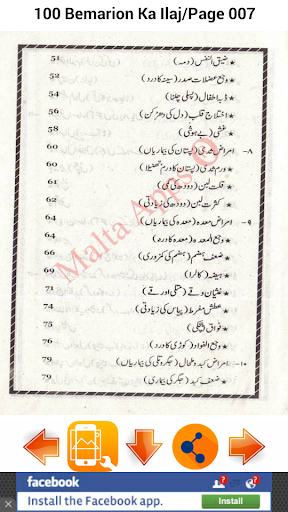 100 Bemarion Ka Ilaj/Page 007
★ ضیق النفس (دمہ) 51
★ وجع عضلات صدر (سینہ کا درد) 52
★ ڈبہ اطفال (پسلی چلنا) 54
★ اختلاج قلب (دل کی دھڑکن) 56
★ غشی (بے ہوشی) 58
۸- امراض ثدی (پستان کی بیماریاں) 60
★ ورم ثدی (پستان کا ورم تھنیلا) 60
★ قلت لبن (دودھ کی کمی) 61
★ کثرت لبن (دودھ کی زیادتی) 62
۹- امراض معدہ (معدہ کی بیماریاں) 64
★ وجع المعدہ (معدہ کا درد) 64
★ ضعف ہضم (ہضم کی کمزوری) 66
★ ہیضہ (کالرا) 69
★ غثیان وقے (متلی اور قے) 71
★ عطش مفرط (پیاس کی زیادتی) 74
★ فواق ہچکی 75
★ وجع الفواد (کوڑی کا درد) 76
۱۰- امراض کبد و طحال (جگر و تلی کی بیماریاں) 79
★ ضعف کبد (جگر کی بیماری) 79
Malta Apps ©
facebook
Install the Facebook app.
Install